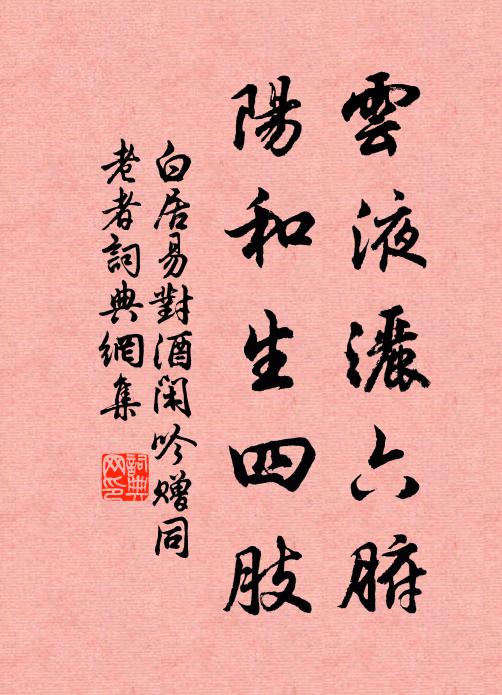 雲液灑六腑
陽和生四肢
白居易對酒閑吟贈同
老者詞典網集
詞典网印